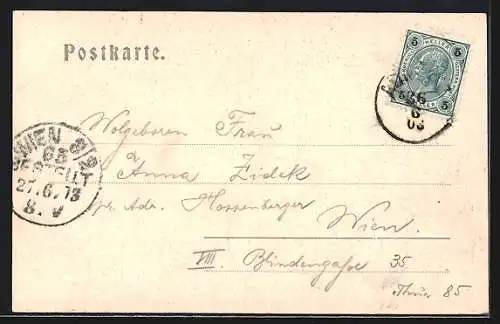 Postkarte.
5 HELLER 5
26
6
03
WIEN 8/2
63
BESTELLT
27.6.03
8.V
Wolgeboren Frau
Anna Zidek
pr. Adr. Hossenberger
Wien.
VIII. Blindengasse 35
Thür 85